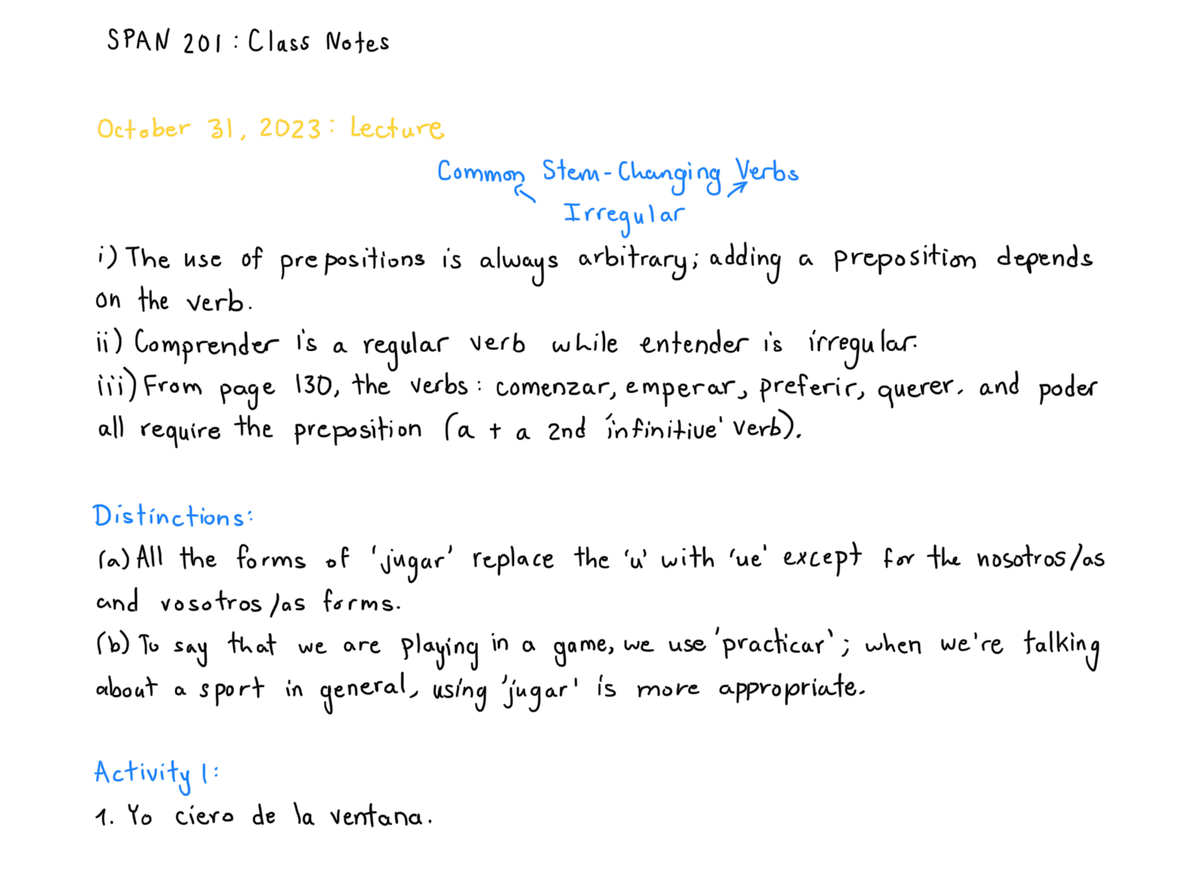 SPAN 201: Class Notes
October 31, 2023: Lecture
Common Stem-Changing Verbs
Irregular
i) The use of prepositions is always arbitrary; adding a preposition depends
on the verb.
ii) Comprender is a regular verb while entender is irregular.
iii) From page 130, the verbs: comenzar, emperar, preferir, querer, and poder
all require the preposition (a + a 2nd infinitive' verb).
Distinctions:
(a) All the forms of 'jugar' replace the 'u' with 'ue' except for the nosotros/as
and vosotros/as forms.
(b) To say that we are playing in a game, we use 'practicar'; when we're talking
about a sport in general, using 'jugar' is more appropriate.
Activity 1:
1. Yo ciero de la ventana.